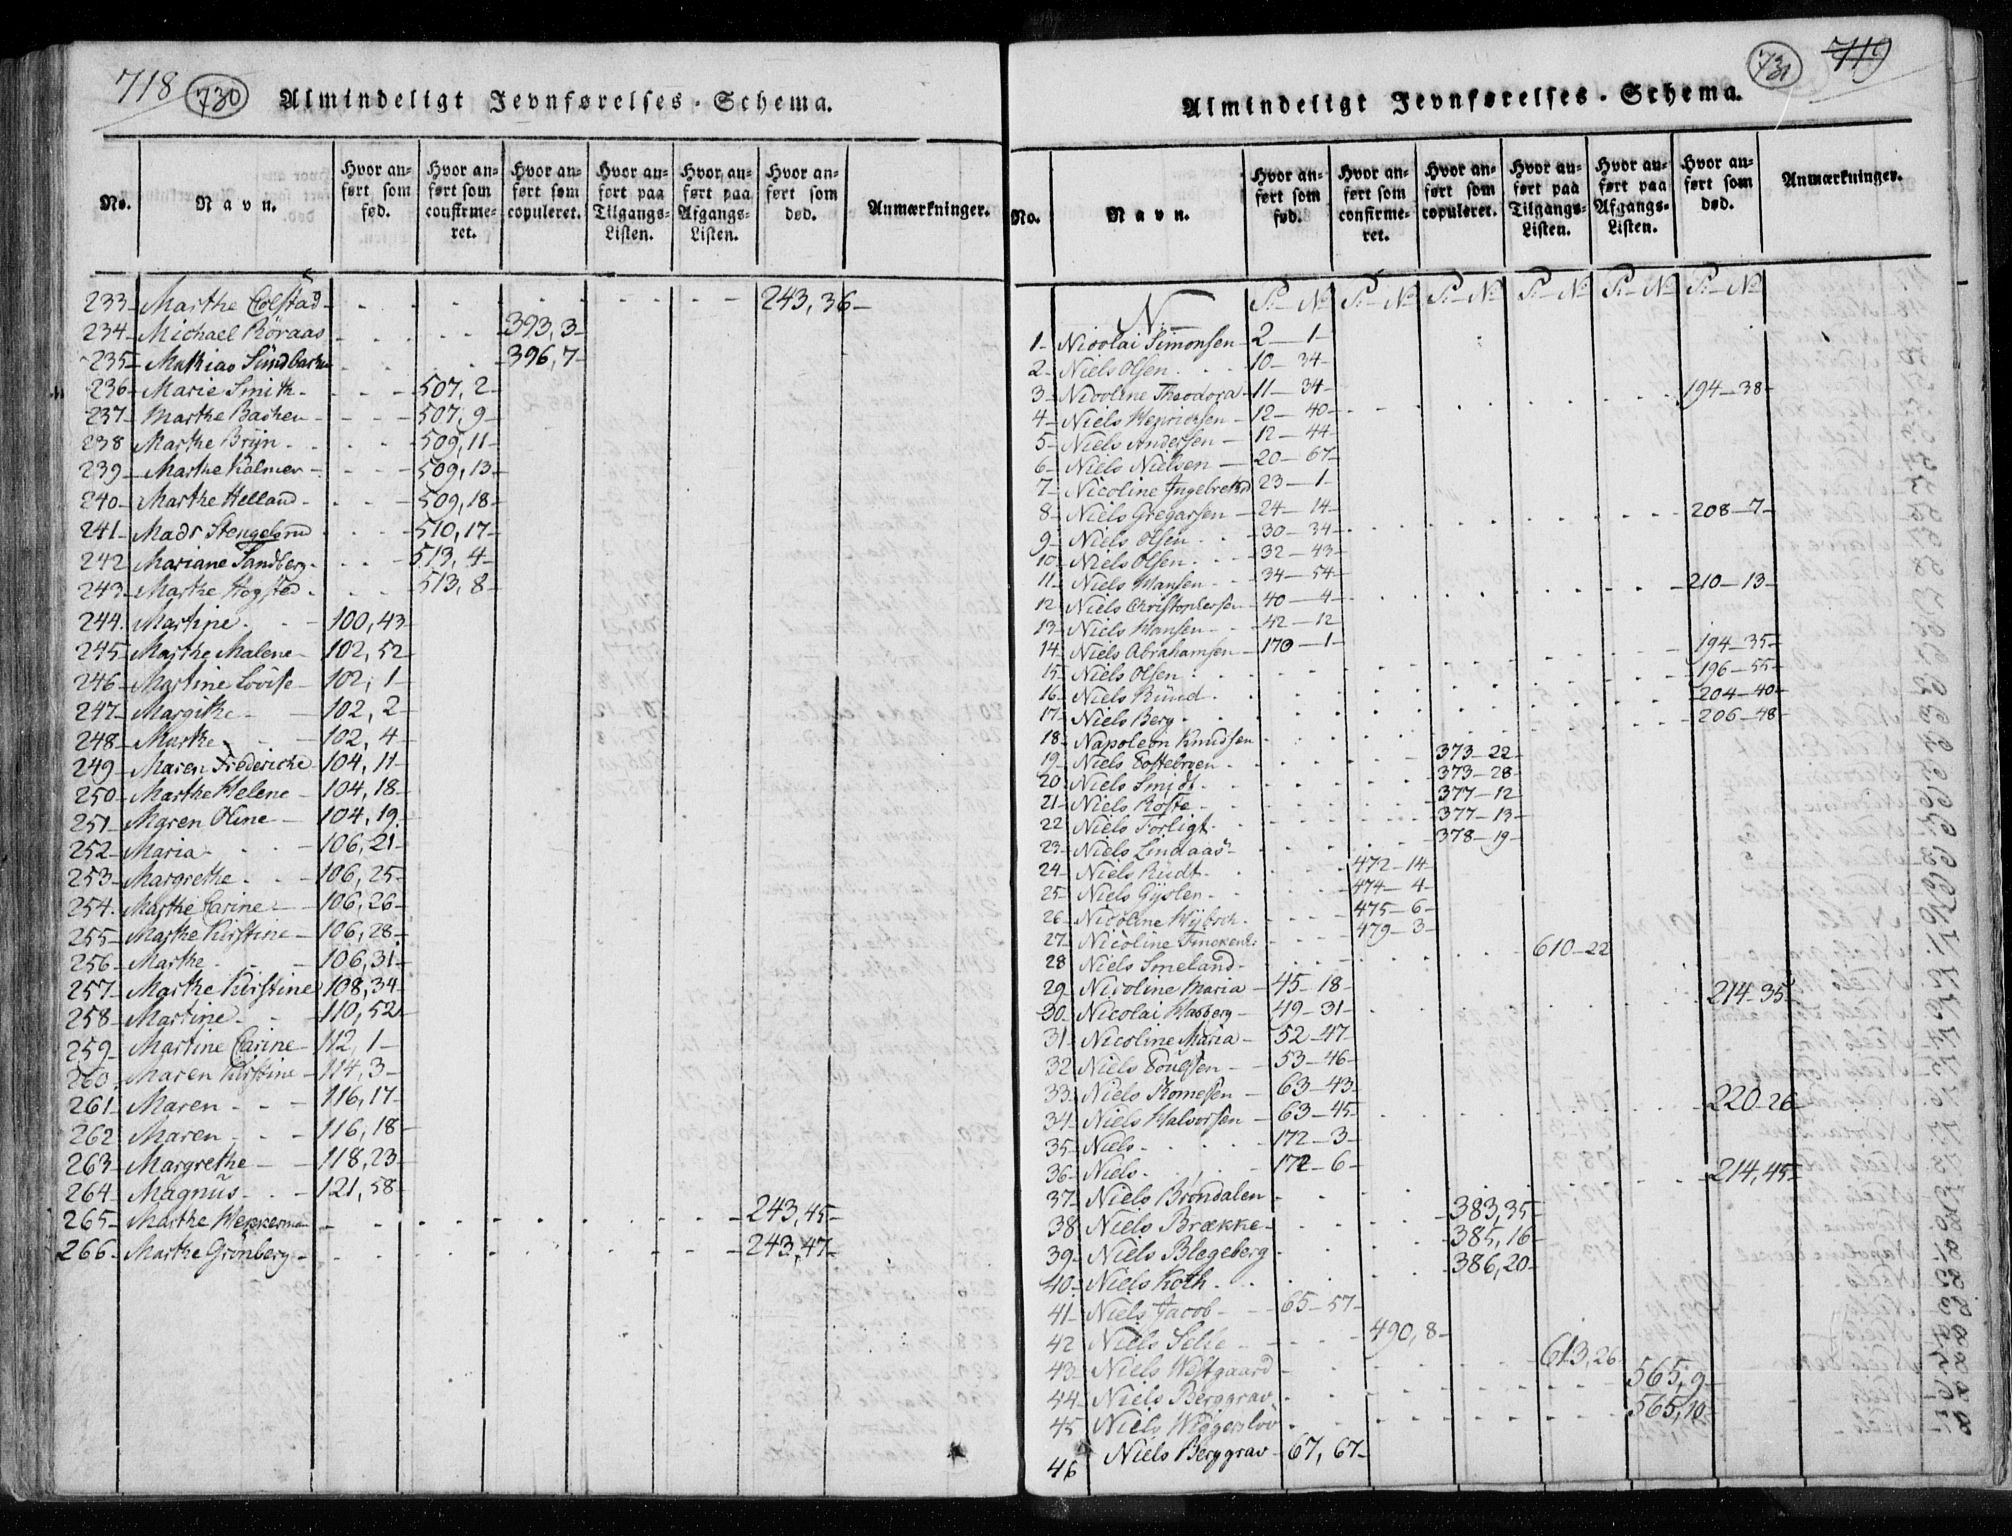 718 730 Almindeligt Jevnførelses-Schema.
No. Navn. Hvor anført som fød. Hvor anført som confirmeret. Hvor anført som copuleret. Hvor anført paa Tilgangs-Listen. Hvor anført paa Afgangs-Listen. Hvor anført som død. Anmærkninger.
233 Marthe Colstad 243, 36
234 Michael Röraas 393, 3
235 Mathias 396, 7
236 Marie Smith 507, 2
237 Marthe Bachen 507, 9
238 Marthe Brÿn 509, 11
239 Marthe Kalmer 509, 13
240 Marthe Helland 509, 18
241 Mads Stengelsrud 510, 17
242 Mariane Sandberg 513, 4
243 Marthe Hogsted 513, 8
244 Martine 100, 43
245 Marthe Malene 102, 52
246 Martine Lovise 102, 1
247 Margithe 102, 2
248 Marthe 102, 4
249 Maren Frederiche 104, 11
250 Marthe Helene 104, 18
251 Maren Oline 104, 19
252 Maria 106, 21
253 Margrethe 106, 25
254 Marthe Carine 106, 26
255 Marthe Kirstine 106, 28
256 Marthe 106, 31
257 Marthe Kirstine 108, 34
258 Martine 110, 52
259 Martine Carine 112, 1
260 Maren Kirstine 114, 3
261 Maren 116, 17
262 Maren 116, 18
263 Margrethe 118, 23
264 Magnus 121, 58
265 Marthe 243, 45
266 Marthe Grönberg 243, 47
731 719
Almindeligt Jevnførelses-Schema.
No. Navn. Hvor anført som fød. Hvor anført som confirmeret. Hvor anført som copuleret. Hvor anført paa Tilgangs-Listen. Hvor anført paa Afgangs-Listen. Hvor anført som død. Anmærkninger.
N. S. No S. No S. No S. No S. No S. No
1 Nicolai Simonsen 2 1
2 Niels Olsen 10 34
3 Nicoline Theodora 11 34
4 Niels Henrichsen 12 40 194 38
5 Niels Andersen 12 44
6 Niels Nielsen 20 67
7 Nicoline Ingebretsd 23 1
8 Niels Gregarsen 24 14
9 Niels Olsen 30 34 208 7
10 Niels Olsen 32 43
11 Niels Hansen 34 54
12 Niels Christophersen 40 4 210 13
13 Niels Hansen 42 12
14 Niels Abrahamsen 170 1
15 Niels Olsen 194 35
16 Niels Rund 196 55
17 Niels Berg 204 40
18 Napoleon Knudsen 206 48
19 Niels 373 22
20 Niels Smidt 373 28
21 Niels Röste 377 12
22 Niels Forligt 377 13
23 Niels Lindaas 378 19
24 Niels Rudt 472 14
25 Niels Gÿslen 474 4
26 Nicoline 475 6
27 Nicoline 479 3
28 Niels Smeland 610 22
29 Nicoline Maria 45 18
30 Nicolai Hasberg 49 31 214 35
31 Nicoline Maria 52 47
32 Niels 53 46
33 Niels 63 43
34 Niels Halvorsen 63 45 220 26
35 Niels 172 3
36 Niels 172 6
37 Niels Bröndalen 214, 45
38 Niels Brække 383, 35
39 Niels Blegeberg 385, 16
40 Niels Koth 386, 20
41 Niels Jacob 65 57
42 Niels Selie 490, 8
43 Niels Westgaard 613, 26
44 Niels Berggrav 565, 9
45 Niels 565, 10
46 Niels Berggrav 67, 67